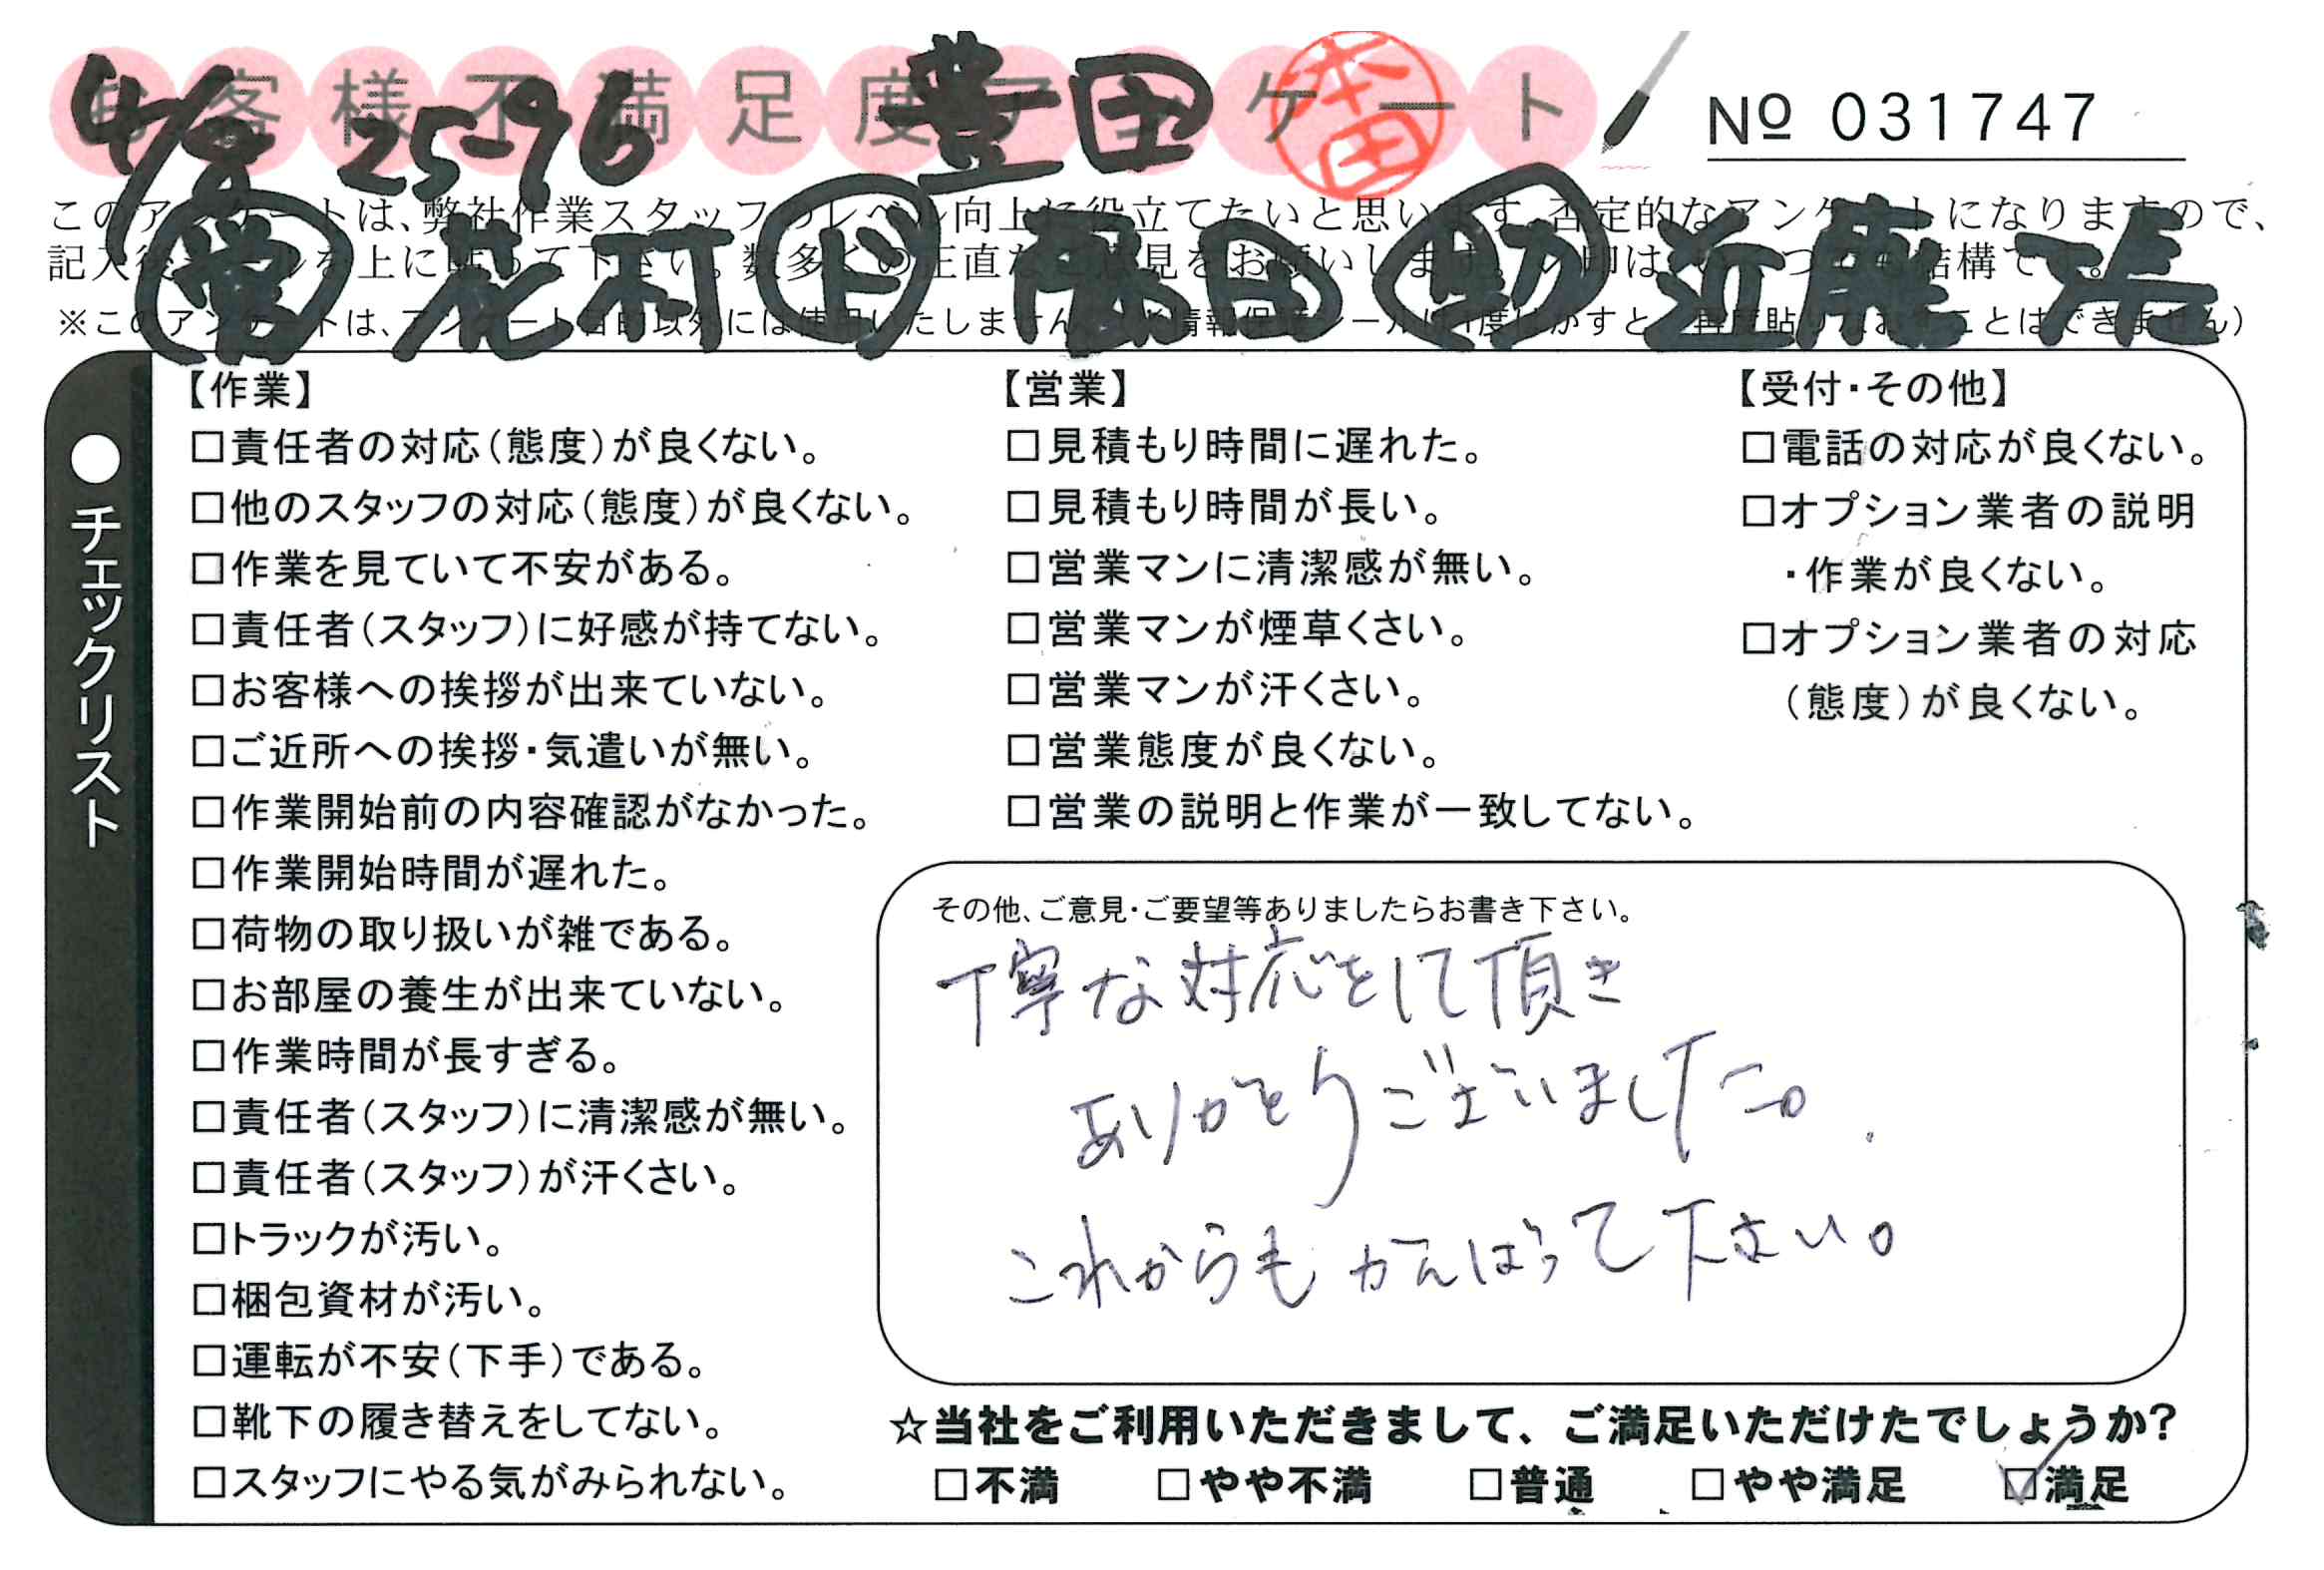 お客様不満足度アンケート
4/2 25-96 豊田 本田
№ 031747
このアンケートは、弊社作業スタッフのレベル向上に役立てたいと思います。否定的なアンケートになりますので、
記入後シールを上に貼って下さい。数多くの正直なご意見をお願いします。
※このアンケートは、アンケート目的以外には使用いたしません。
営 花村 ド 助 近 張
●チェックリスト
【作業】
□責任者の対応(態度)が良くない。
□他のスタッフの対応(態度)が良くない。
□作業を見ていて不安がある。
□責任者(スタッフ)に好感が持てない。
□お客様への挨拶が出来ていない。
□ご近所への挨拶・気遣いが無い。
□作業開始前の内容確認がなかった。
□作業開始時間が遅れた。
□荷物の取り扱いが雑である。
□お部屋の養生が出来ていない。
□作業時間が長すぎる。
□責任者(スタッフ)に清潔感が無い。
□責任者(スタッフ)が汗くさい。
□トラックが汚い。
□梱包資材が汚い。
□運転が不安(下手)である。
□靴下の履き替えをしてない。
□スタッフにやる気がみられない。
【営業】
□見積もり時間に遅れた。
□見積もり時間が長い。
□営業マンに清潔感が無い。
□営業マンが煙草くさい。
□営業マンが汗くさい。
□営業態度が良くない。
□営業の説明と作業が一致してない。
【受付・その他】
□電話の対応が良くない。
□オプション業者の説明
・作業が良くない。
□オプション業者の対応
(態度)が良くない。
その他、ご意見・ご要望等ありましたらお書き下さい。
丁寧な対応をして頂き
ありがとうございました。
これからもがんばって下さい。
☆当社をご利用いただきまして、ご満足いただけたでしょうか?
□不満 □やや不満 □普通 □やや満足 ☑満足